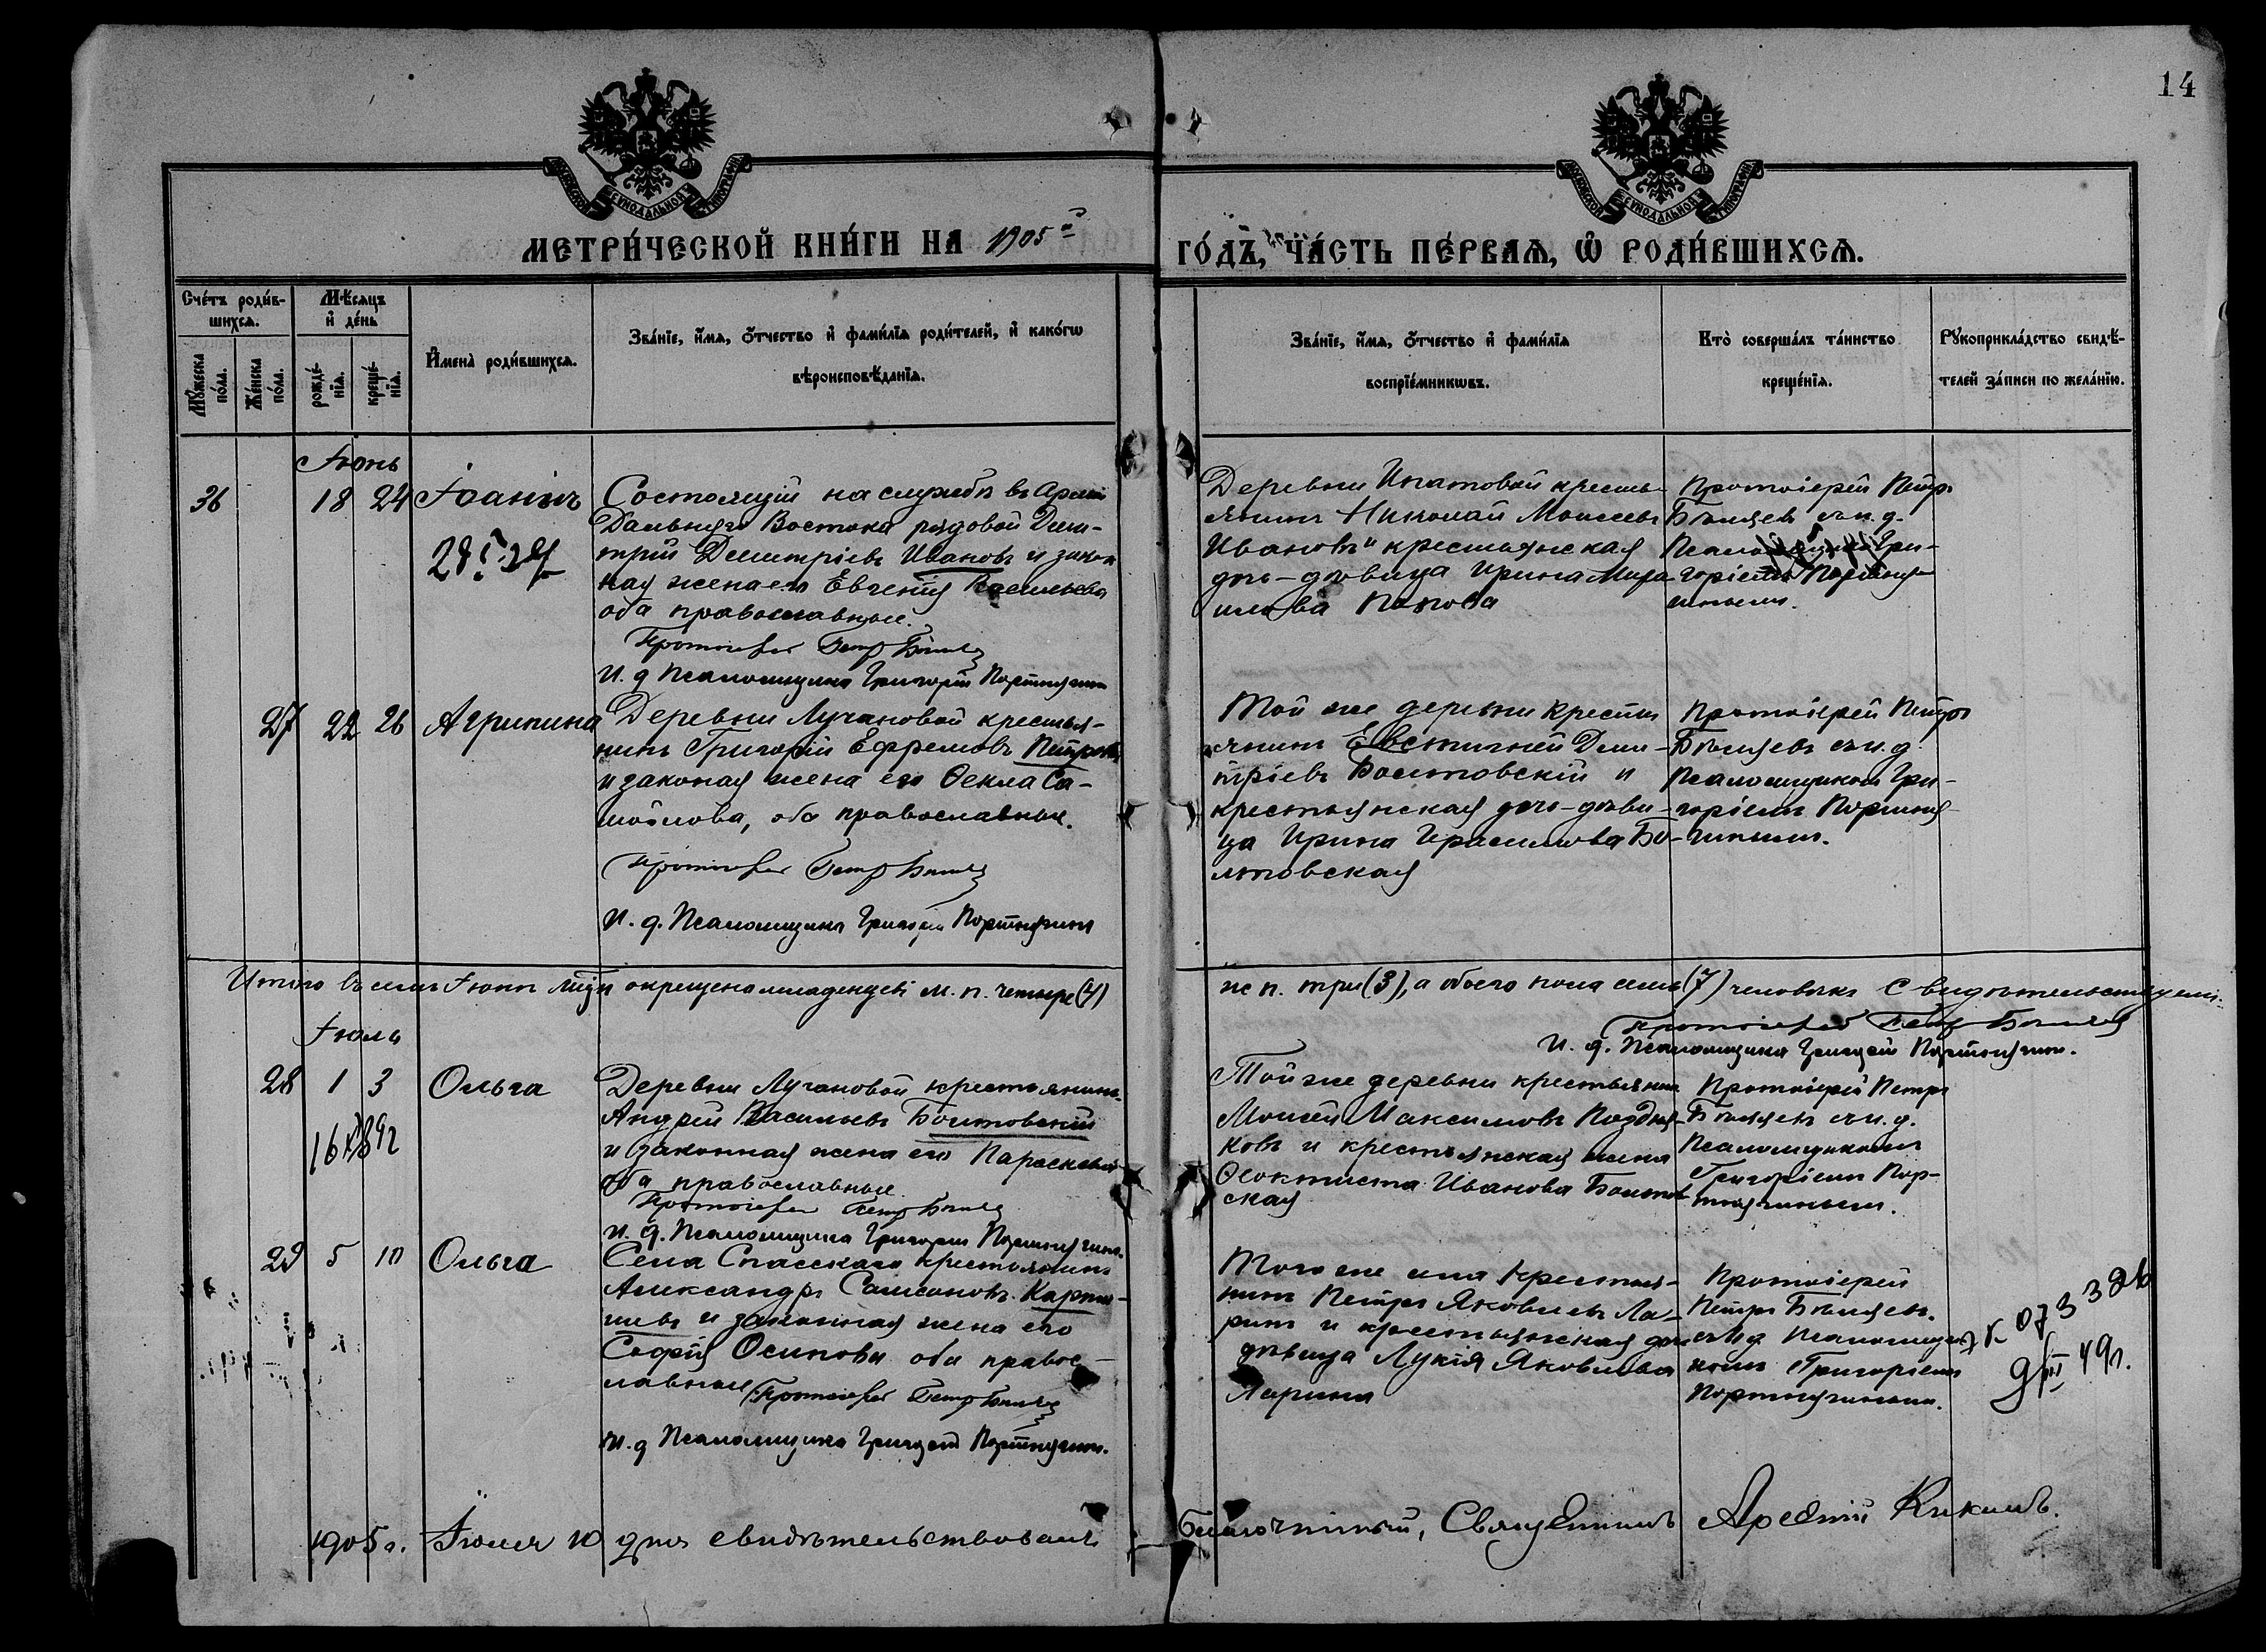 14
МОСКОВСКОЙ СѴНОДАЛЬНОЙ ТИПОГРАФІИ
МОСКОВСКОЙ СѴНОДАЛЬНОЙ ТИПОГРАФІИ
МЕТРИ́ЧЕСКОЙ КНИ́ГИ НА 1905й
ГО́ДЪ, ЧА́СТЬ ПЕ́РВАЯ, Ѡ҆ РОДИ́ВШИХСЯ.
Сче́тъ роди́в-
шихся.
Мꙋ́жеска по́ла.
Же́нска по́ла.
Мѣ́сяцъ
и҆ де́нь
рожде́-
нїя.
креще́-
нїя.
И҆мена̀ роди́вшихся.
Зва́нїе, и҆́мя, ѻ҆́тчество и҆ фами́лїя роди́телей, и҆ како́гѡ
вѣроисповѣ́данїя.
Зва́нїе, и҆́мя, ѻ҆́тчество и҆ фами́лїя
воспрїе́мникѡвъ.
Кто̀ соверша́лъ та́инство
креще́нїя.
Рꙋкоприкла́дство свидѣ́-
телей за́писи по жела́нїю.
Іюнь
36 18 24 Іоаннъ
Состоящій на службѣ въ Арміи
Дальняго Востока рядовой Дми-
трій Димитріевъ Ивановъ и закон
ная жена его Евгенія Васильева
оба православные.
Протоіерей Петр Бѣляев
И. д Псаломщика Григорій Портнягин
Деревни Ипатовой кресть-
янинъ Николай Моисеевъ
Ивановъ и крестьянская
дочь-дѣвица Ирина
Попова
Протоіерей Петръ
Бѣляевъ съ и. д.
Гри-
горіемъ Портня-
гинымъ.
27 22 26 Агрипина
Деревни Лучановой крестья-
нинъ Григорій Ефремовъ Петровъ
и законая жена его Ѳекла Са-
мойлова, оба православные.
Протоіерей Петр Бѣляев
И. д. Псаломщика Григорій Портнягинъ
Той же деревни крестья
янинъ Евстигней Дими-
тріевъ Болтовскій и
крестьянская дочь-дѣви-
ца Ирина Герасимова Бо-
лтовская
Протоіерей Петръ
Бѣляевъ съ и. д.
Псаломщикомъ Гри-
горіемъ Портня-
гинымъ.
Итого въ семъ Іюнѣ м-цѣ окрещено младенцевъ м. п. четыре (4)
ж п. три (3), а обоего пола семь (7) человѣкъ Свидѣтельствуемъ:
Протоіерей Петр Бѣляев
И. д. Псаломщика Григорій Портнягинъ.
Іюль
28 1 3 Ольга
Деревни Лучановой крестьянинъ
Андрей Васильевъ Болтовскій
и законная жена его Параскева
оба православные.
Протоіерей Петр Бѣляев
И. д. Псаломщика Григорій Портнягинъ.
Той же деревни крестьянинъ
Моисей Максимовъ Поздня-
ковъ и крестьянская жена
Ѳеоктиста Иванова Болтов
ская
Протоіерей Петръ
Бѣляевъ съ и. д.
Псаломщикомъ
Григоріемъ Пор-
тнягинымъ.
29 5 10 Ольга
Села Спасскаго крестьянинъ
Александръ Самсоновъ Карта-
шевъ и законная жена его
Софія Осипова оба правос-
лавные Протоіерей Петр Бѣляев
И. д Псаломщика Григорій Портнягинъ.
Того же села крестья-
нинъ Петръ Яковлевъ Ла-
ринъ и крестьянская дочь
дѣвица Лукія Яковлева
Ларина
Протоіерей
Петръ Бѣляевъ.
съ и д Псаломщи-
комъ Григоріемъ
Портнягинымъ.
9/III 49г.
1905 г. Іюля 10 дня свидѣтельствовалъ
Благочинный, Священникъ